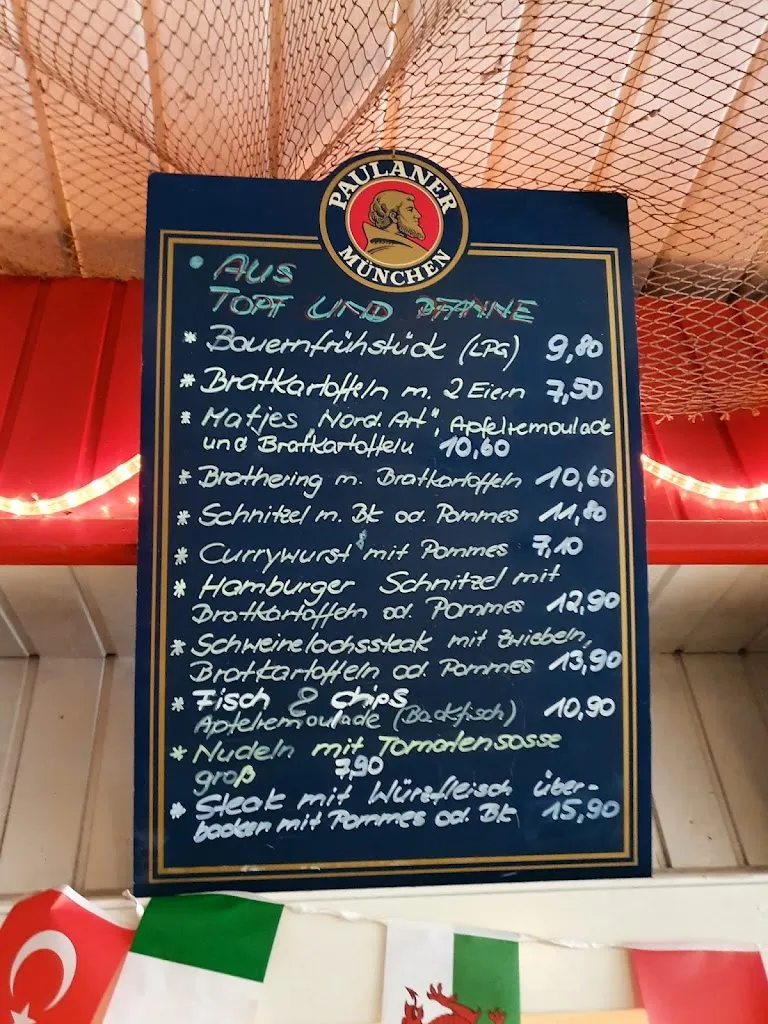 PAULANER
MÜNCHEN
• AUS
TOPF UND PFANNE
* Bauernfrühstück (LPG) 9,80
* Bratkartoffeln m. 2 Eiern 7,50
* Matjes „Nord. Art“, Apfelremoulade
und Bratkartoffeln 10,60
* Brathering m. Bratkartoffeln 10,60
* Schnitzel m. Bk od. Pommes 11,80
* Currywurst mit Pommes 7,10
* Hamburger Schnitzel mit
Bratkartoffeln od. Pommes 12,90
* Schweinelachssteak mit Zwiebeln,
Bratkartoffeln od. Pommes 13,90
* Fisch & Chips
Apfelremoulade (Backfisch) 10,90
* Nudeln mit Tomatensosse
groß 7,90
* Steak mit Würzfleisch über-
backen mit Pommes od. Bk 15,90